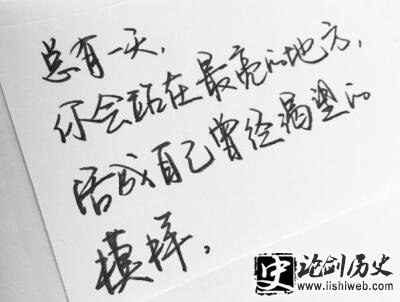 总有一天，
你会站在最亮的地方，
活成自己曾经渴望的
模样，
史 论剑历史
www.lishiweb.com